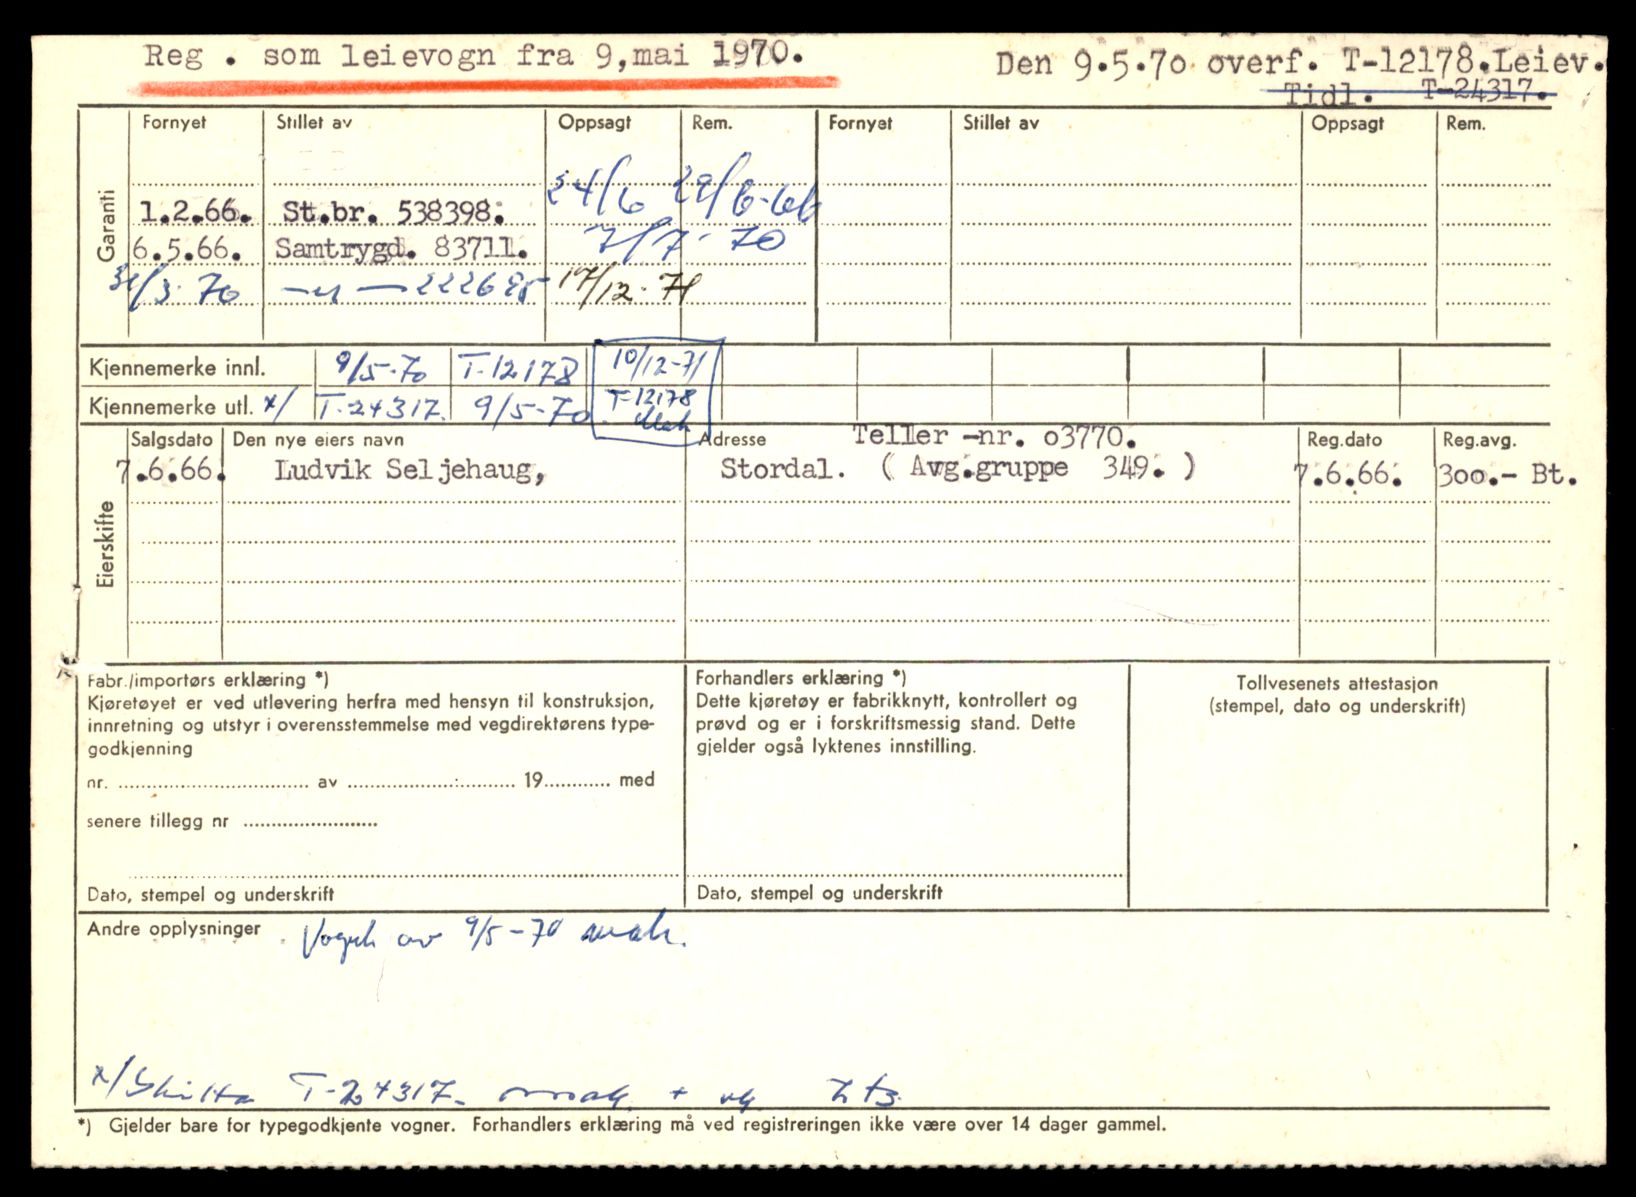 Reg . som leievogn fra 9,mai 1970.
Den 9.5.70 overf. T-12178.Leiev.
Tidl. T-24317.
Garanti
Fornyet Stillet av Oppsagt Rem. Fornyet Stillet av Oppsagt Rem.
24/6 29/6-66
1.2.66. St.br. 538398.
6.5.66. Samtrygd. 83711. 7/7-70
31/3-70 222685 17/12-71
Kjennemerke innl. 9/5-70 T-12178 10/12-71
Kjennemerke utl. x/ T-24317. 9/5-70 T-12178
Eierskifte
Salgsdato Den nye eiers navn Adresse Teller -nr. 03770. Reg.dato Reg.avg.
7.6.66. Ludvik Seljehaug, Stordal. ( Avg.gruppe 349. ) 7.6.66. 300.- Bt.
Fabr./importørs erklæring *)
Kjøretøyet er ved utlevering herfra med hensyn til konstruksjon,
innretning og utstyr i overensstemmelse med vegdirektørens type-
godkjenning
nr. av 19 med
senere tillegg nr
Dato, stempel og underskrift
Forhandlers erklæring *)
Dette kjøretøy er fabrikknytt, kontrollert og
prøvd og er i forskriftsmessig stand. Dette
gjelder også lyktenes innstilling.
Dato, stempel og underskrift
Tollvesenets attestasjon
(stempel, dato og underskrift)
Andre opplysninger Vognk av 9/5-70 mak.
x/ Skilta T-24317- mak. + vk
*) Gjelder bare for typegodkjente vogner. Forhandlers erklæring må ved registreringen ikke være over 14 dager gammel.